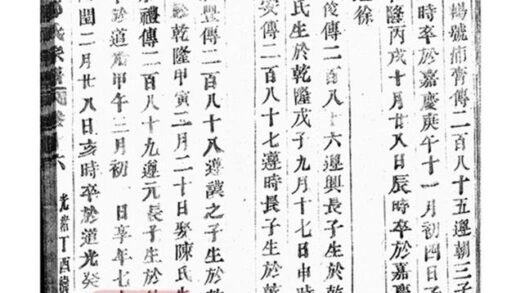 號蒲膏傳二百八十五遜朝三子
時卒於嘉慶庚午十一月初四日子
隆丙戌十月廿八日辰時卒於嘉慶
徐
俊傳二百八十六遜興長子生於乾
氏生於乾隆戊子九月十七日申時
安傳二百八十七遜時長子生
豐傳二百八十八遜讓之子生於
乾隆甲寅二月二十日娶陳氏生
禮傳二百八十九遜元長子生於
卒於道光甲午三月初 日享年七
閏二月廿八日亥時卒於道光癸
六 光緒丁酉